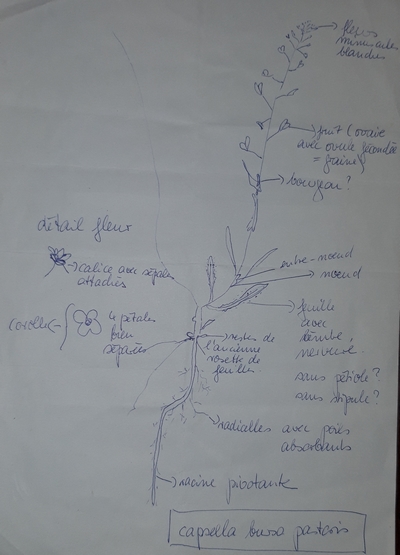 fleurs
minuscules
blanches
fruit (ovaire
avec ovule fécondée
= graine)
bourgeon ?
détail fleur
calice avec sépales
attachés
corolle
4 pétales
bien
séparés
entre-nœud
nœud
feuille
avec
limbe,
nervure.
sans pétiole ?
sans stipule ?
restes de
l'ancienne
rosette de
feuilles.
radicelles avec poils
absorbants
racine pivotante
capsella bursa pastoris